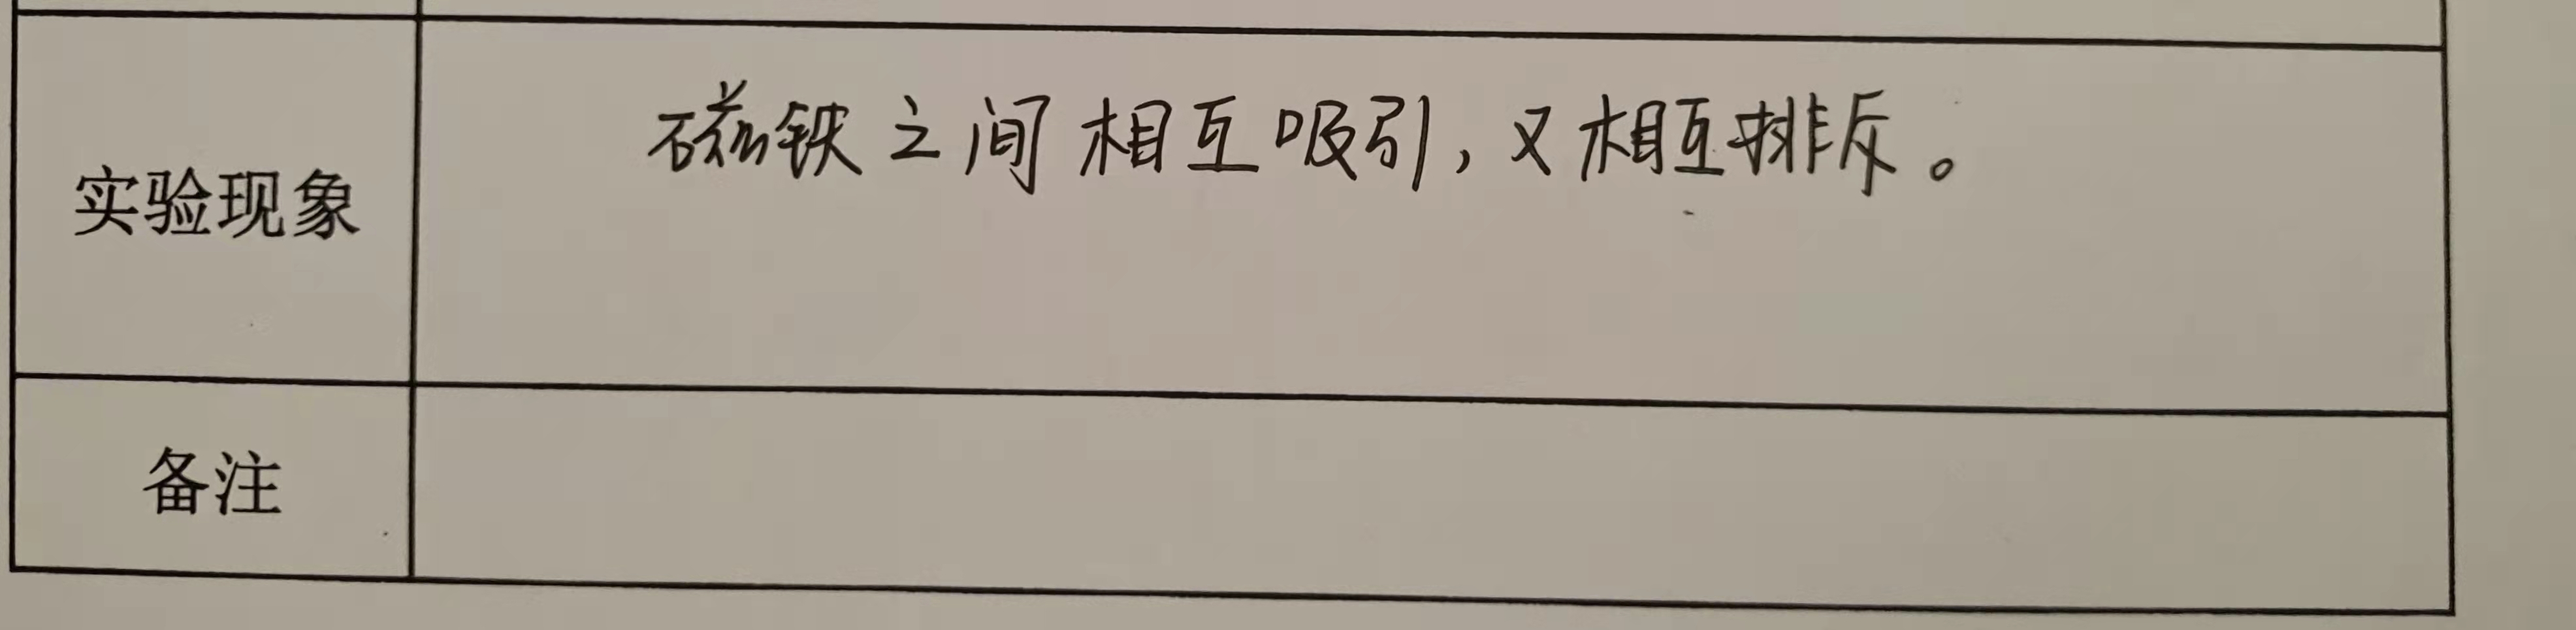 实验现象
磁铁之间相互吸引，又相互排斥。
备注